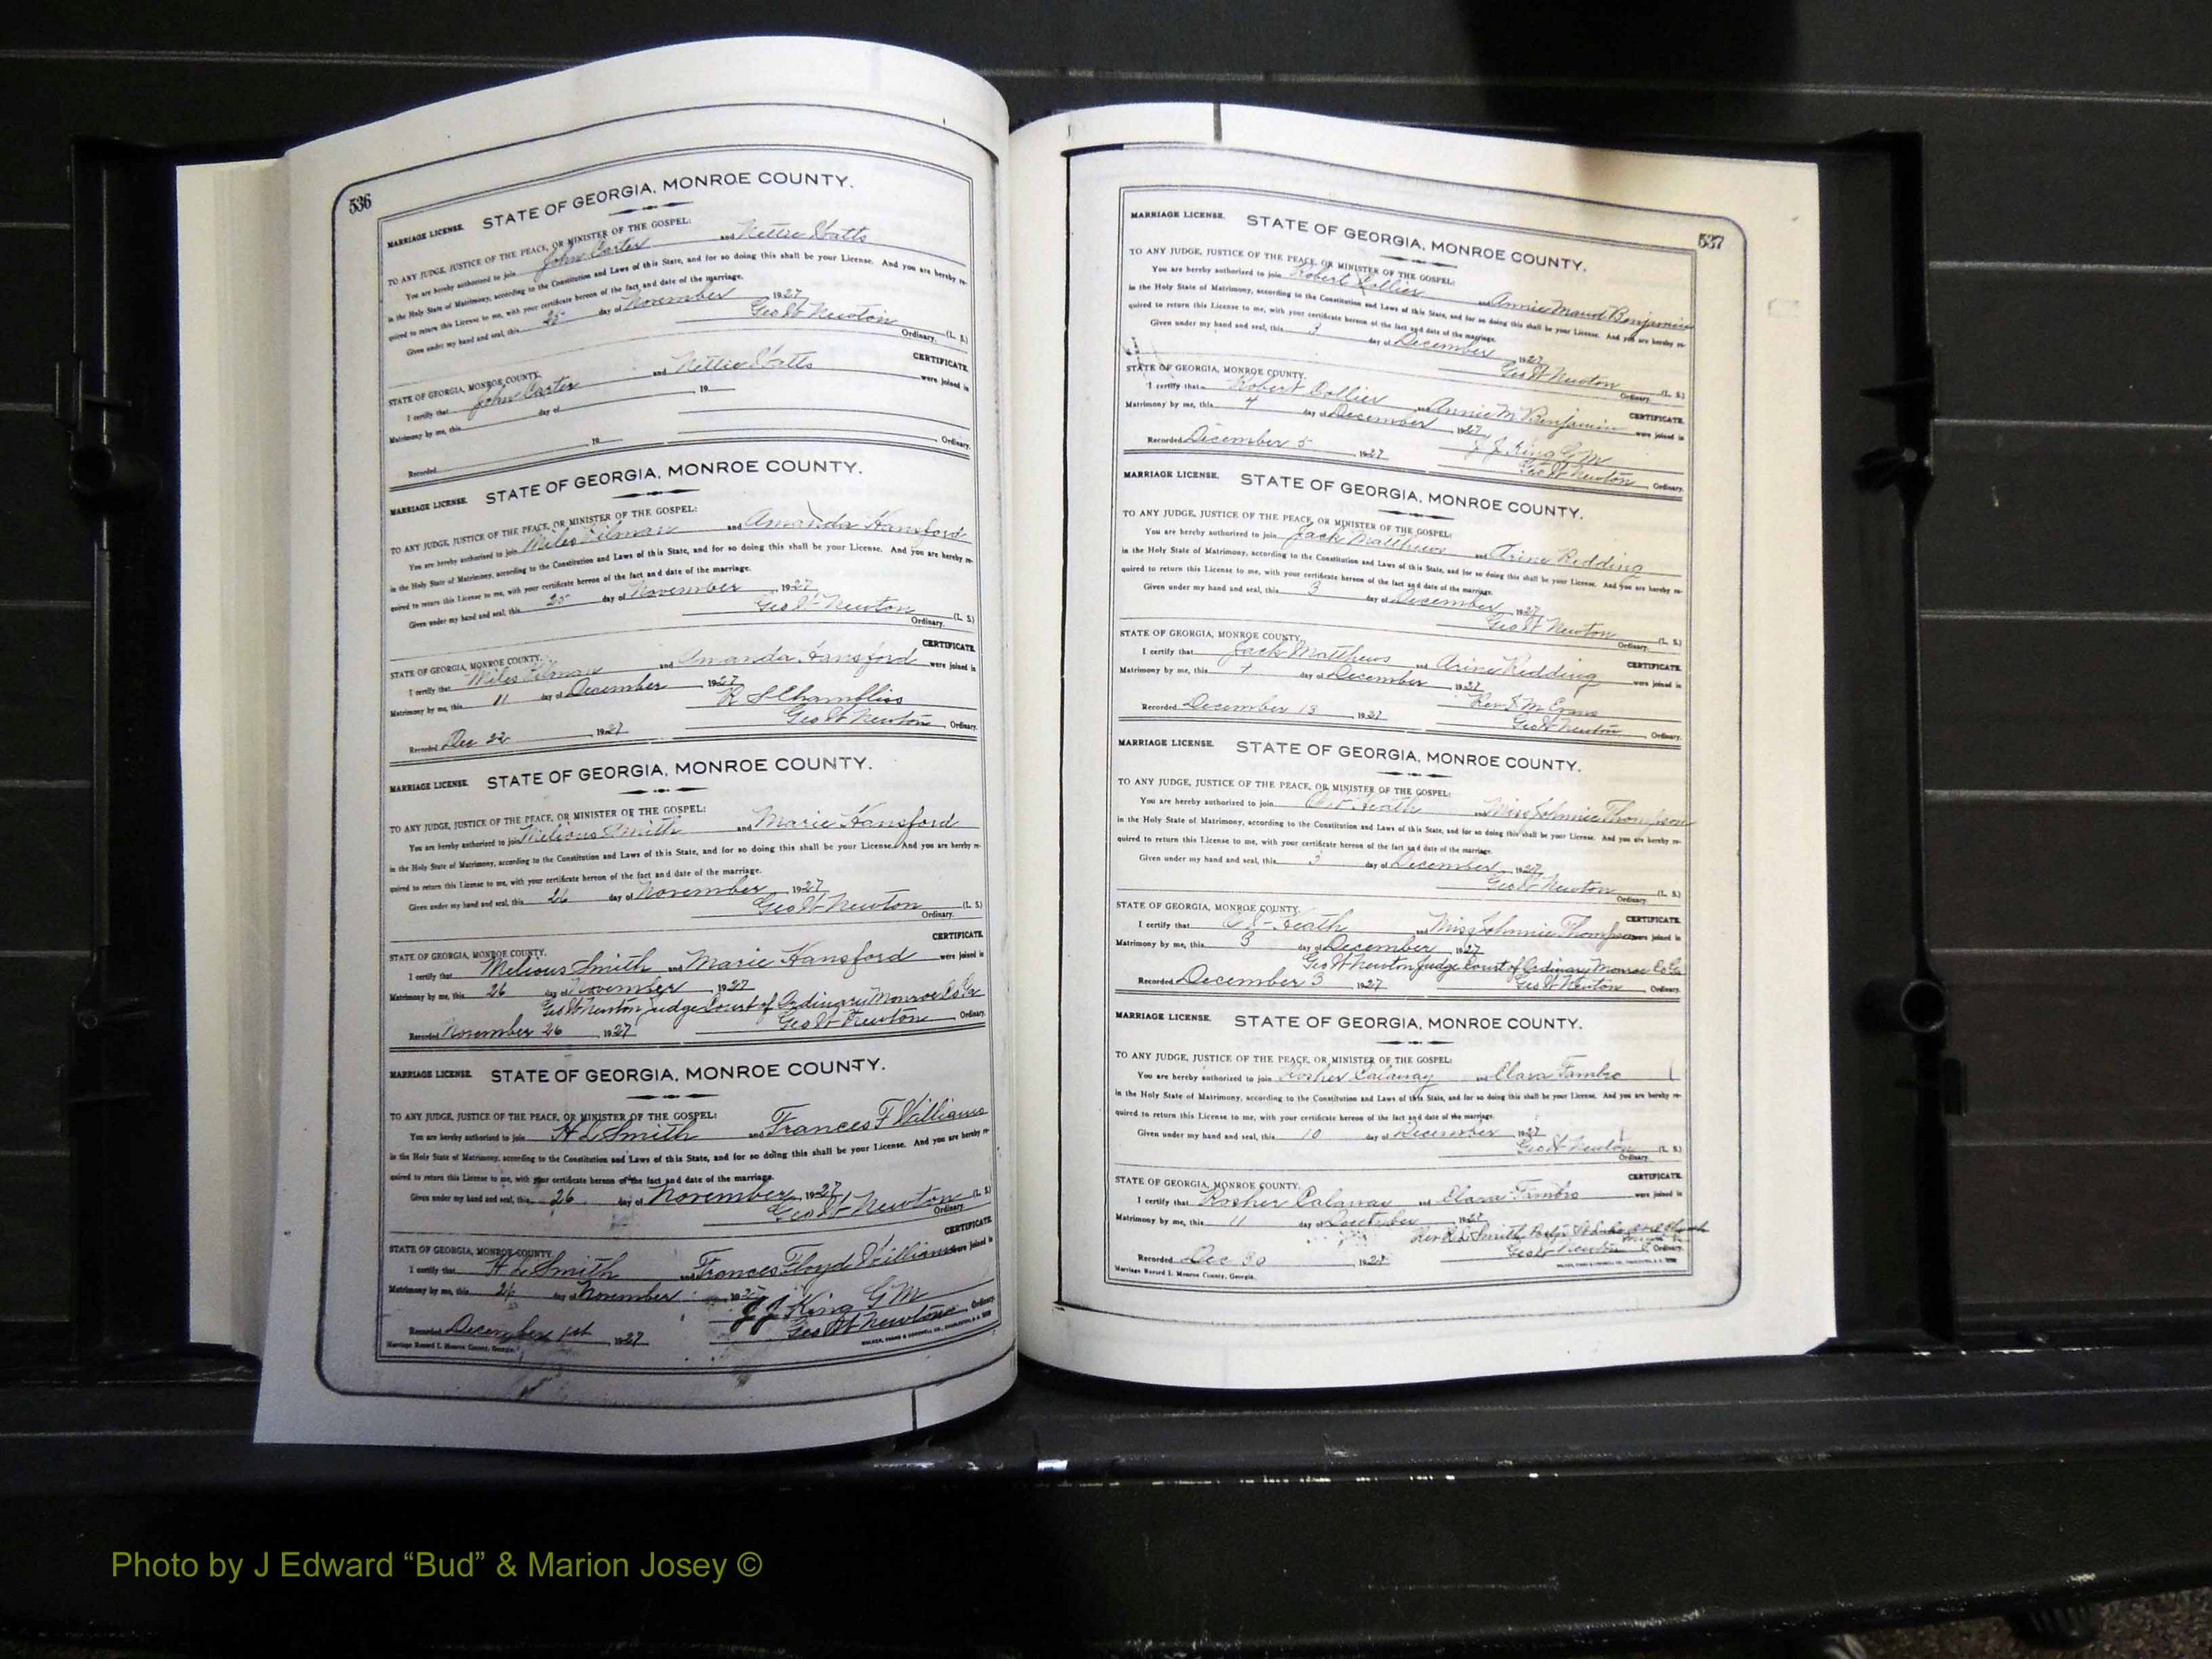 536
STATE OF GEORGIA, MONROE COUNTY.
MARRIAGE LICENSE.
TO ANY JUDGE, JUSTICE OF THE PEACE, OR MINISTER OF THE GOSPEL:
You are hereby authorized to join John Carter and Nettie Watts
in the Holy State of Matrimony, according to the Constitution and Laws of this State, and for so doing this shall be your License. And you are hereby re-
quired to return this License to me, with your certificate hereon of the fact and date of the marriage.
Given under my hand and seal, this 25 day of November 1927
Geo W Newton (L. S.)
Ordinary.
CERTIFICATE.
STATE OF GEORGIA, MONROE COUNTY.
I certify that John Carter and Nettie Watts were joined in
Matrimony by me, this day of , 19
Recorded , 19 Ordinary.
STATE OF GEORGIA, MONROE COUNTY.
MARRIAGE LICENSE.
TO ANY JUDGE, JUSTICE OF THE PEACE, OR MINISTER OF THE GOSPEL:
You are hereby authorized to join Miles and Amanda Hansford
in the Holy State of Matrimony, according to the Constitution and Laws of this State, and for so doing this shall be your License. And you are hereby re-
quired to return this License to me, with your certificate hereon of the fact and date of the marriage.
Given under my hand and seal, this 25 day of November , 1927
Geo W Newton (L. S.)
Ordinary.
CERTIFICATE.
STATE OF GEORGIA, MONROE COUNTY.
I certify that Miles and Amanda Hansford were joined in
Matrimony by me, this 11 day of December , 1927
R S Chambliss
Geo W Newton , Ordinary.
Recorded Dec 22 , 1927
STATE OF GEORGIA, MONROE COUNTY.
MARRIAGE LICENSE.
TO ANY JUDGE, JUSTICE OF THE PEACE, OR MINISTER OF THE GOSPEL:
You are hereby authorized to join Melious Smith and Marie Hansford
in the Holy State of Matrimony, according to the Constitution and Laws of this State, and for so doing this shall be your License. And you are hereby re-
quired to return this License to me, with your certificate hereon of the fact and date of the marriage.
Given under my hand and seal, this 26 day of November , 1927
Geo W Newton (L. S.)
Ordinary.
CERTIFICATE.
STATE OF GEORGIA, MONROE COUNTY.
I certify that Melious Smith and Marie Hansford were joined in
Matrimony by me, this 26 day of November , 1927
Geo W Newton Judge Court of Ordinary Monroe Co Ga
Recorded November 26 , 1927 Geo W Newton , Ordinary.
MARRIAGE LICENSE. STATE OF GEORGIA, MONROE COUNTY.
TO ANY JUDGE, JUSTICE OF THE PEACE, OR MINISTER OF THE GOSPEL:
You are hereby authorized to join H L Smith and Frances F Williams
in the Holy State of Matrimony, according to the Constitution and Laws of this State, and for so doing this shall be your License. And you are hereby re-
quired to return this License to me, with your certificate hereon of the fact and date of the marriage.
Given under my hand and seal, this 26 day of November , 1927
Geo W Newton (L. S.)
Ordinary.
CERTIFICATE.
STATE OF GEORGIA, MONROE COUNTY.
I certify that H L Smith and Frances Floyd Williams were joined in
Matrimony by me, this 26 day of November , 1927
J J King G M
Geo W Newton , Ordinary.
Recorded December 1st , 1927
Marriage Record I. Monroe County, Georgia.
WALKER, EVANS & COGSWELL CO., CHARLESTON, S. C.
537
MARRIAGE LICENSE. STATE OF GEORGIA, MONROE COUNTY.
TO ANY JUDGE, JUSTICE OF THE PEACE, OR MINISTER OF THE GOSPEL:
You are hereby authorized to join Robert Collier and Annie Maud Benjamin
in the Holy State of Matrimony, according to the Constitution and Laws of this State, and for so doing this shall be your License. And you are hereby re-
quired to return this License to me, with your certificate hereon of the fact and date of the marriage.
Given under my hand and seal, this 3 day of December , 1927
Geo W Newton (L. S.)
Ordinary.
STATE OF GEORGIA, MONROE COUNTY.
CERTIFICATE.
I certify that Robert Collier and Annie M Benjamin were joined in
Matrimony by me, this 4 day of December , 1927
J J King G M
Recorded December 5 , 1927 Geo W Newton , Ordinary.
MARRIAGE LICENSE. STATE OF GEORGIA, MONROE COUNTY.
TO ANY JUDGE, JUSTICE OF THE PEACE, OR MINISTER OF THE GOSPEL:
You are hereby authorized to join Jack Matthews and Arine Redding
in the Holy State of Matrimony, according to the Constitution and Laws of this State, and for so doing this shall be your License. And you are hereby re-
quired to return this License to me, with your certificate hereon of the fact and date of the marriage.
Given under my hand and seal, this 3 day of December , 1927
Geo W Newton (L. S.)
Ordinary.
STATE OF GEORGIA, MONROE COUNTY.
CERTIFICATE.
I certify that Jack Matthews and Arine Redding were joined in
Matrimony by me, this 4 day of December , 1927
Rev J M Evans
Recorded December 13 , 1927 Geo W Newton , Ordinary.
MARRIAGE LICENSE. STATE OF GEORGIA, MONROE COUNTY.
TO ANY JUDGE, JUSTICE OF THE PEACE, OR MINISTER OF THE GOSPEL:
You are hereby authorized to join Heath and Miss Johnnie Thompson
in the Holy State of Matrimony, according to the Constitution and Laws of this State, and for so doing this shall be your License. And you are hereby re-
quired to return this License to me, with your certificate hereon of the fact and date of the marriage.
Given under my hand and seal, this 3 day of December , 1927
Geo W Newton (L. S.)
Ordinary.
STATE OF GEORGIA, MONROE COUNTY.
CERTIFICATE.
I certify that Heath and Miss Johnnie Thompson were joined in
Matrimony by me, this 3 day of December , 1927
Geo W Newton Judge Court of Ordinary Monroe Co Ga
Recorded December 3 , 1927 Geo W Newton , Ordinary.
MARRIAGE LICENSE. STATE OF GEORGIA, MONROE COUNTY.
TO ANY JUDGE, JUSTICE OF THE PEACE, OR MINISTER OF THE GOSPEL:
You are hereby authorized to join Rosher Calaway and Clara Fambro
in the Holy State of Matrimony, according to the Constitution and Laws of this State, and for so doing this shall be your License. And you are hereby re-
quired to return this License to me, with your certificate hereon of the fact and date of the marriage.
Given under my hand and seal, this 10 day of December , 1927
Geo W Newton (L. S.)
Ordinary.
STATE OF GEORGIA, MONROE COUNTY.
CERTIFICATE.
I certify that Rosher Calaway and Clara Fambro were joined in
Matrimony by me, this 11 day of December , 1927
Rev R L Smith Church
Recorded Dec 30 , 1927 Geo W Newton Ordinary.
Marriage Record I. Monroe County, Georgia.
WALKER, EVANS & COGSWELL CO., CHARLESTON, S. C.
Photo by J Edward “Bud” & Marion Josey ©